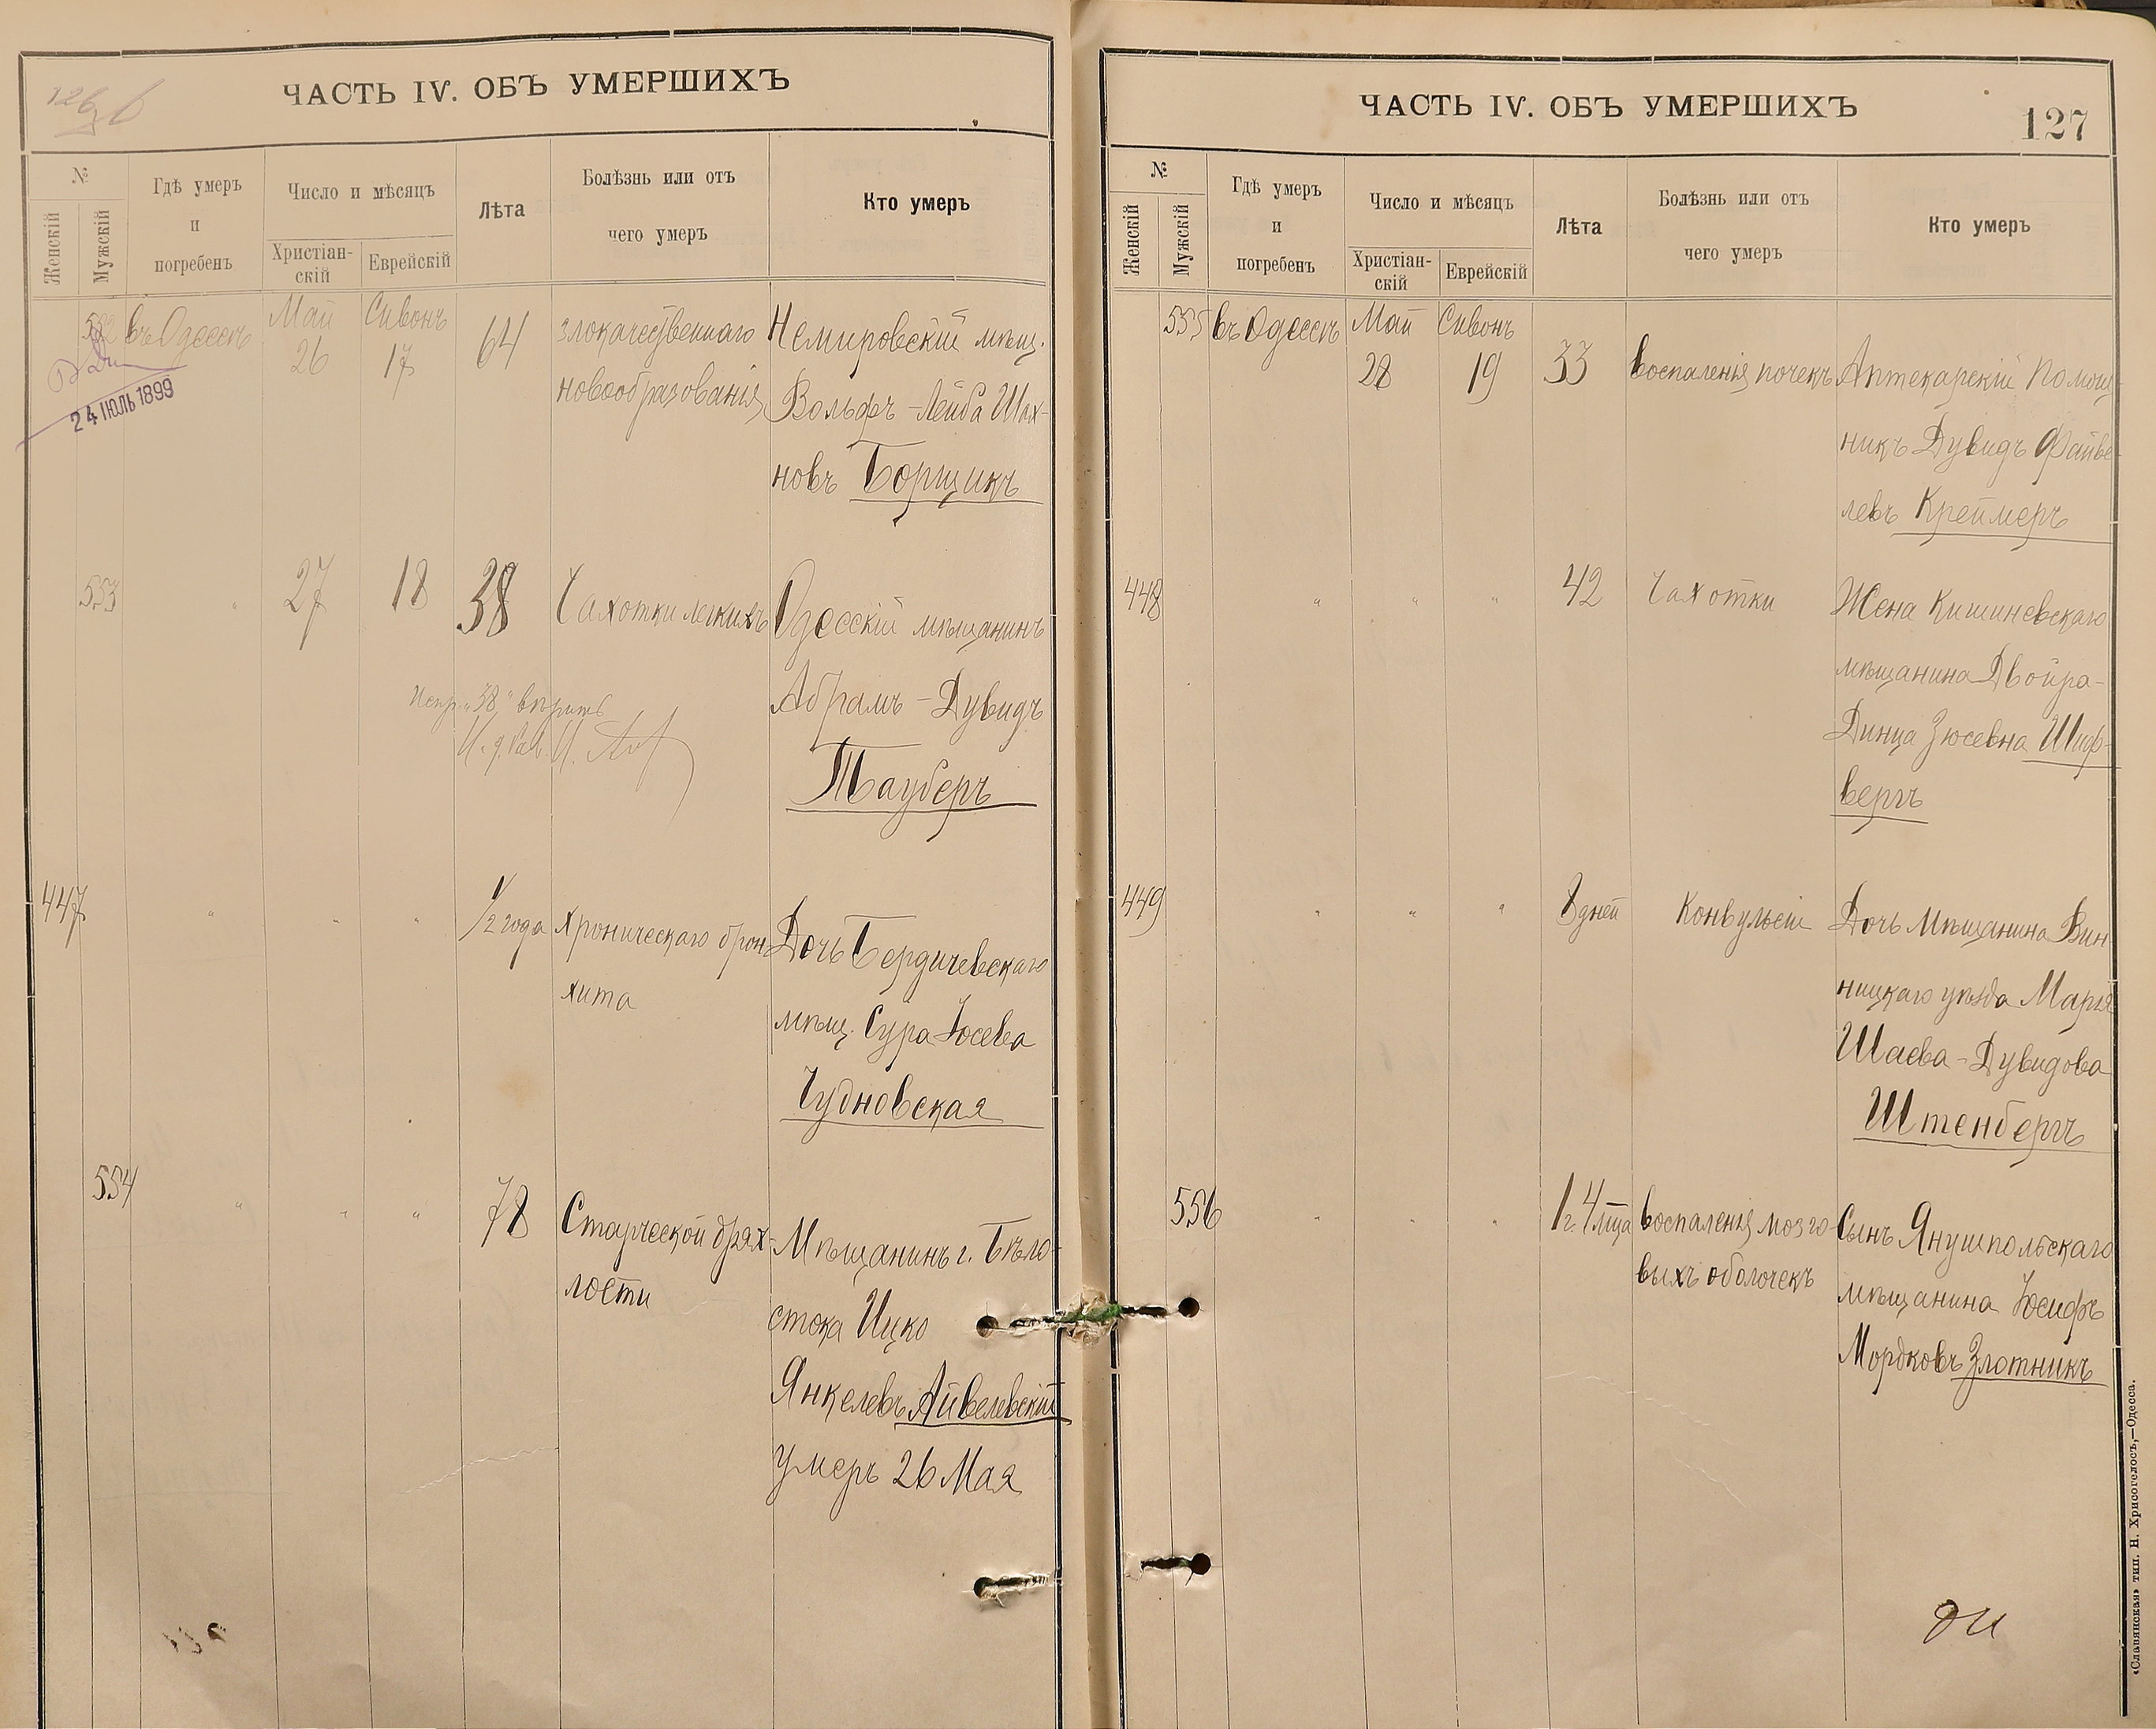 ЧАСТЬ IV. ОБЪ УМЕРШИХЪ
№
Женскій
Мужскій
Гдѣ умеръ
и
погребенъ
Число и мѣсяцъ
Христіан-
скій
Еврейскій
Лѣта
Болѣзнь или отъ
чего умеръ
Кто умеръ
532 въ Одессѣ Май Сивонъ 64 злокачественнаго Немировскій мѣщ.
24 ІЮЛЬ 1899
26 17 новообразованія Вольфъ-Лейба Шах-
новъ Борщикъ
553 " 27 18 38 Чахотки легкихъ Одесскій мѣщанинъ
Абрамъ-Дувидъ
"38" вѣрить
Тауберъ
447 " " " 1/2 года хроническаго брон- Дочь Бердичевскаго
хита мѣщ. Сура Іосева
Чудновская
554 " " " 78 Старческой дрях- Мѣщанинъ г. Бѣло-
лости стока Ицко
Янкелевъ Айвелевскій
умеръ 26 Мая
ЧАСТЬ IV. ОБЪ УМЕРШИХЪ
127
№
Женскій
Мужскій
Гдѣ умеръ
и
погребенъ
Число и мѣсяцъ
Христіан-
скій
Еврейскій
Лѣта
Болѣзнь или отъ
чего умеръ
Кто умеръ
555 въ Одессѣ Май Сивонъ
28 19 33 воспаленія почекъ Аптекарскій Помощ-
никъ Дувидъ Файве-
левъ Креймеръ
448 " " " 42 Чахотки Жена Кишиневскаго
мѣщанина Двойра-
Динца Зюсевна Шиф-
вергъ
449 " " " 8 дней Конвульсіи Дочь Мѣщанина Вин-
ницкаго уѣзда Марія
Шаева-Дувидова
Штенбергъ
556 " " " 1 г. 4 мца воспаленія мозго- Сынъ Янушпольскаго
выхъ оболочекъ мѣщанина Іосифъ
Мордковъ Злотникъ
«Славянская» тип. Н. Хрисогелосъ,—Одесса.